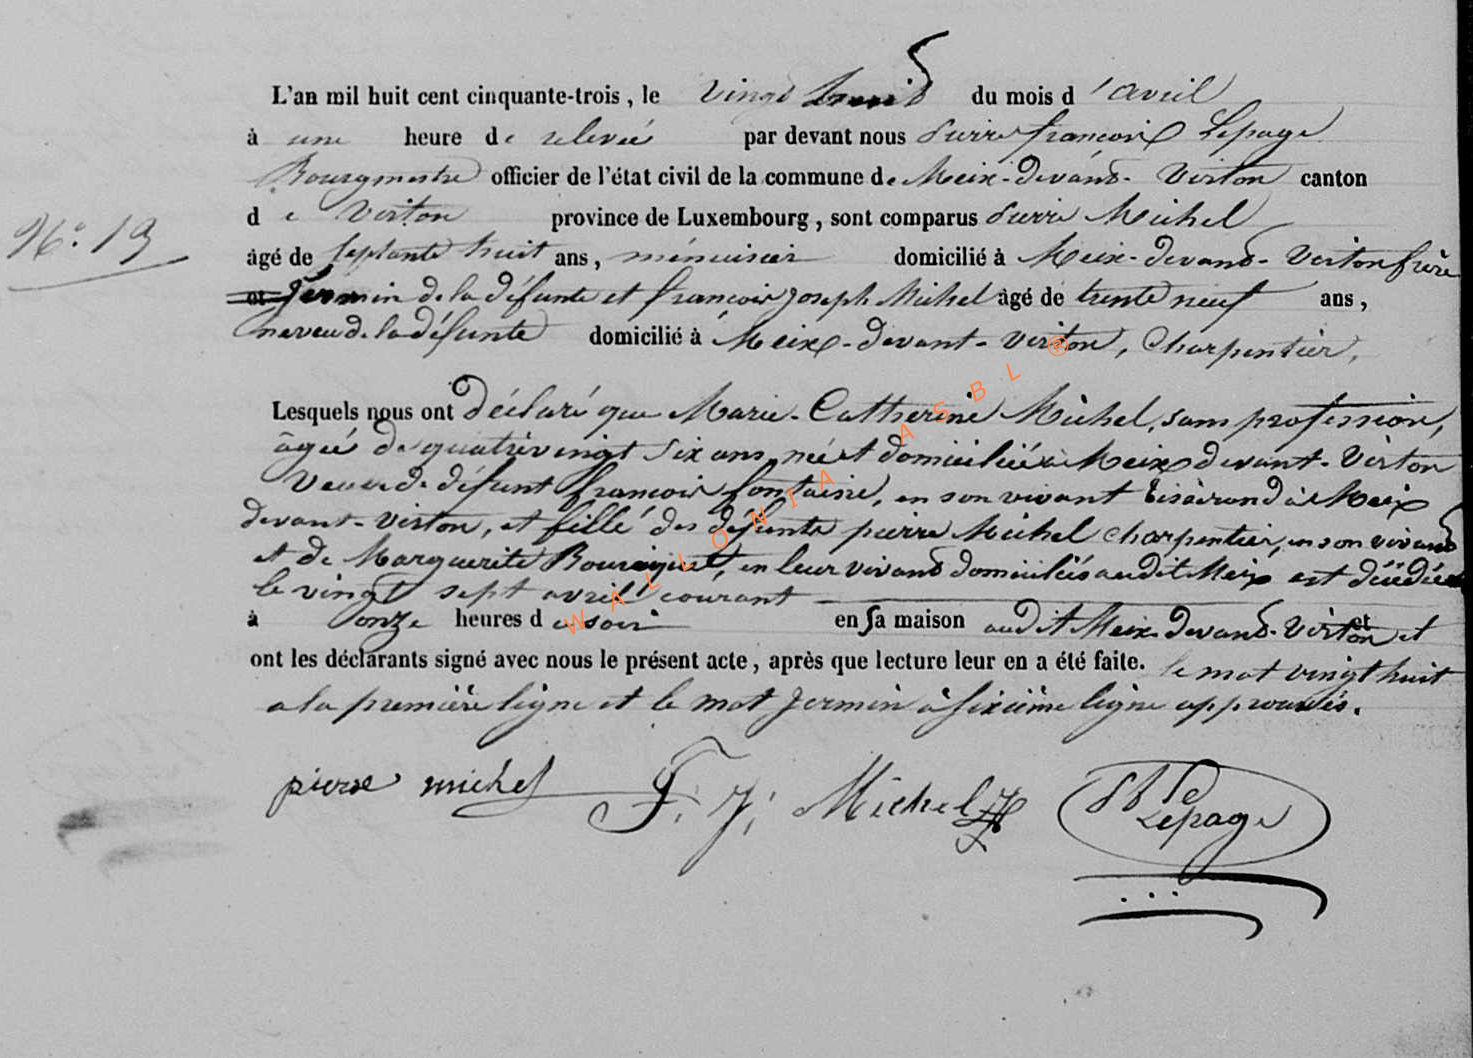 L'an mil huit cent cinquante-trois, le vingt huit du mois d'avril
à une heure de relevée par devant nous Pierre françois Lepage
Bourgmestre officier de l'état civil de la commune de Meix-devant-Virton canton
de Virton province de Luxembourg, sont comparus Pierre Michel
N° 13
âgé de septante huit ans, ménuisier domicilié à Meix-devant-Virton frère
et Jermin de la défunte et françois joseph Michel âgé de trente neuf ans,
neveu de la défunte domicilié à Meix-devant-Virton, Charpentier,
Lesquels nous ont déclaré que Marie-Catherine Michel, sans profession,
âgée de quatrevingt six ans, née et domiciliée à Meix devant-Virton
Veuve de défunt françois fontaine, en son vivant tisserand à Meix
devant-Virton, et fille des défunts pierre Michel charpentier, en son vivant
et de Marguerite, en leur vivant domiciliés audit Meix est décédée
le vingt sept avril courant
à onze heures du soir en sa maison audit Meix-devant-Virton et
ont les déclarants signé avec nous le présent acte, après que lecture leur en a été faite. le mot vingt huit
a la première ligne et le mot Jermin à sixième ligne approuvés.
pierre michel F. J. Michel Lepage
WALLONIA ASBL ®